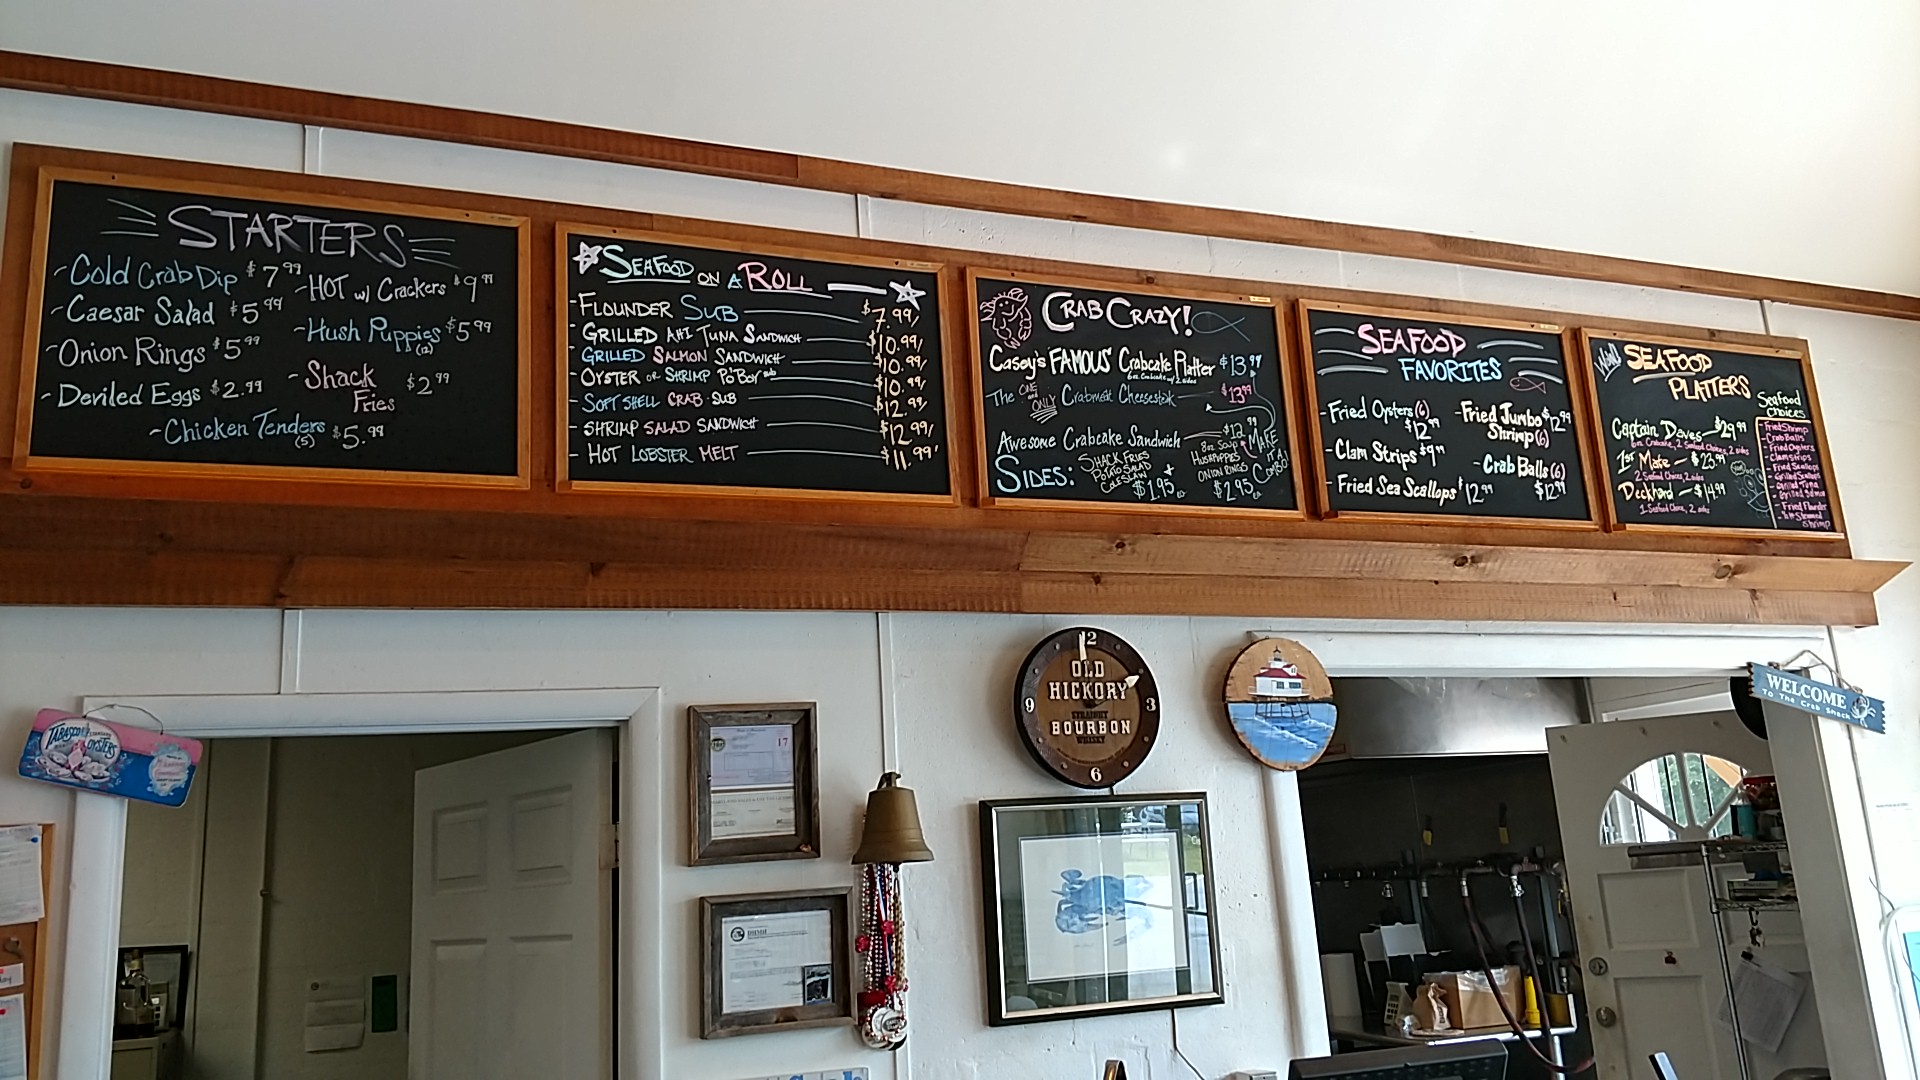 STARTERS
-Cold Crab Dip $7.99
-HOT w/ Crackers $9.99
-Caesar Salad $5.99
-Hush Puppies $5.99
(12)
-Onion Rings $5.99
-Shack Fries $2.99
-Deviled Eggs $2.99
-Chicken Tenders $5.99
(5)
SEAFOOD ON A ROLL
-FLOUNDER SUB $7.99/
-GRILLED AHI TUNA SANDWICH $10.99/
-GRILLED SALMON SANDWICH $10.99/
-OYSTER OR SHRIMP PO'BOY SUB $10.99/
-SOFT SHELL CRAB SUB $12.99/
-SHRIMP SALAD SANDWICH $12.99/
-HOT LOBSTER MELT $11.99/
CRAB CRAZY!
Casey's FAMOUS Crabcake Platter $13.99
The ONE and ONLY Crabmeat Cheesesteak $13.99
Awesome Crabcake Sandwich $12.99
SIDES:
SHACK FRIES
POTATO SALAD
COLESLAW
$1.95 ea
+
8oz. Soup
HUSHPUPPIES
ONION RINGS
$2.95 ea
MAKE
IT A
COMBO!
SEAFOOD
FAVORITES
-Fried Oysters (6)
$12.99
-Clam Strips $9.99
-Fried Sea Scallops $12.99
-Fried Jumbo $12.99
Shrimp (6)
-Crab Balls (6)
$12.99
WOW! SEAFOOD
PLATTERS
Captain Daves $29.99
6oz. Crabcake, 2 Seafood Choices, 2 sides
1st Mate $23.99
2 Seafood Choices, 2 sides
Deckhand $14.99
1 Seafood Choice, 2 sides
Seafood
Choices
-Fried Shrimp
-Crab Balls
-Fried Oysters
-Clam strips
-Fried Scallops
-Grilled Scallops
-Grilled Tuna
-Grilled Salmon
-Fried Flounder
Steamed
Shrimp
TABASCO
OYSTERS
17
12
OLD
HICKORY
9
3
STRAIGHT
BOURBON
WHISKEY
6
WELCOME
To The Crab Shack